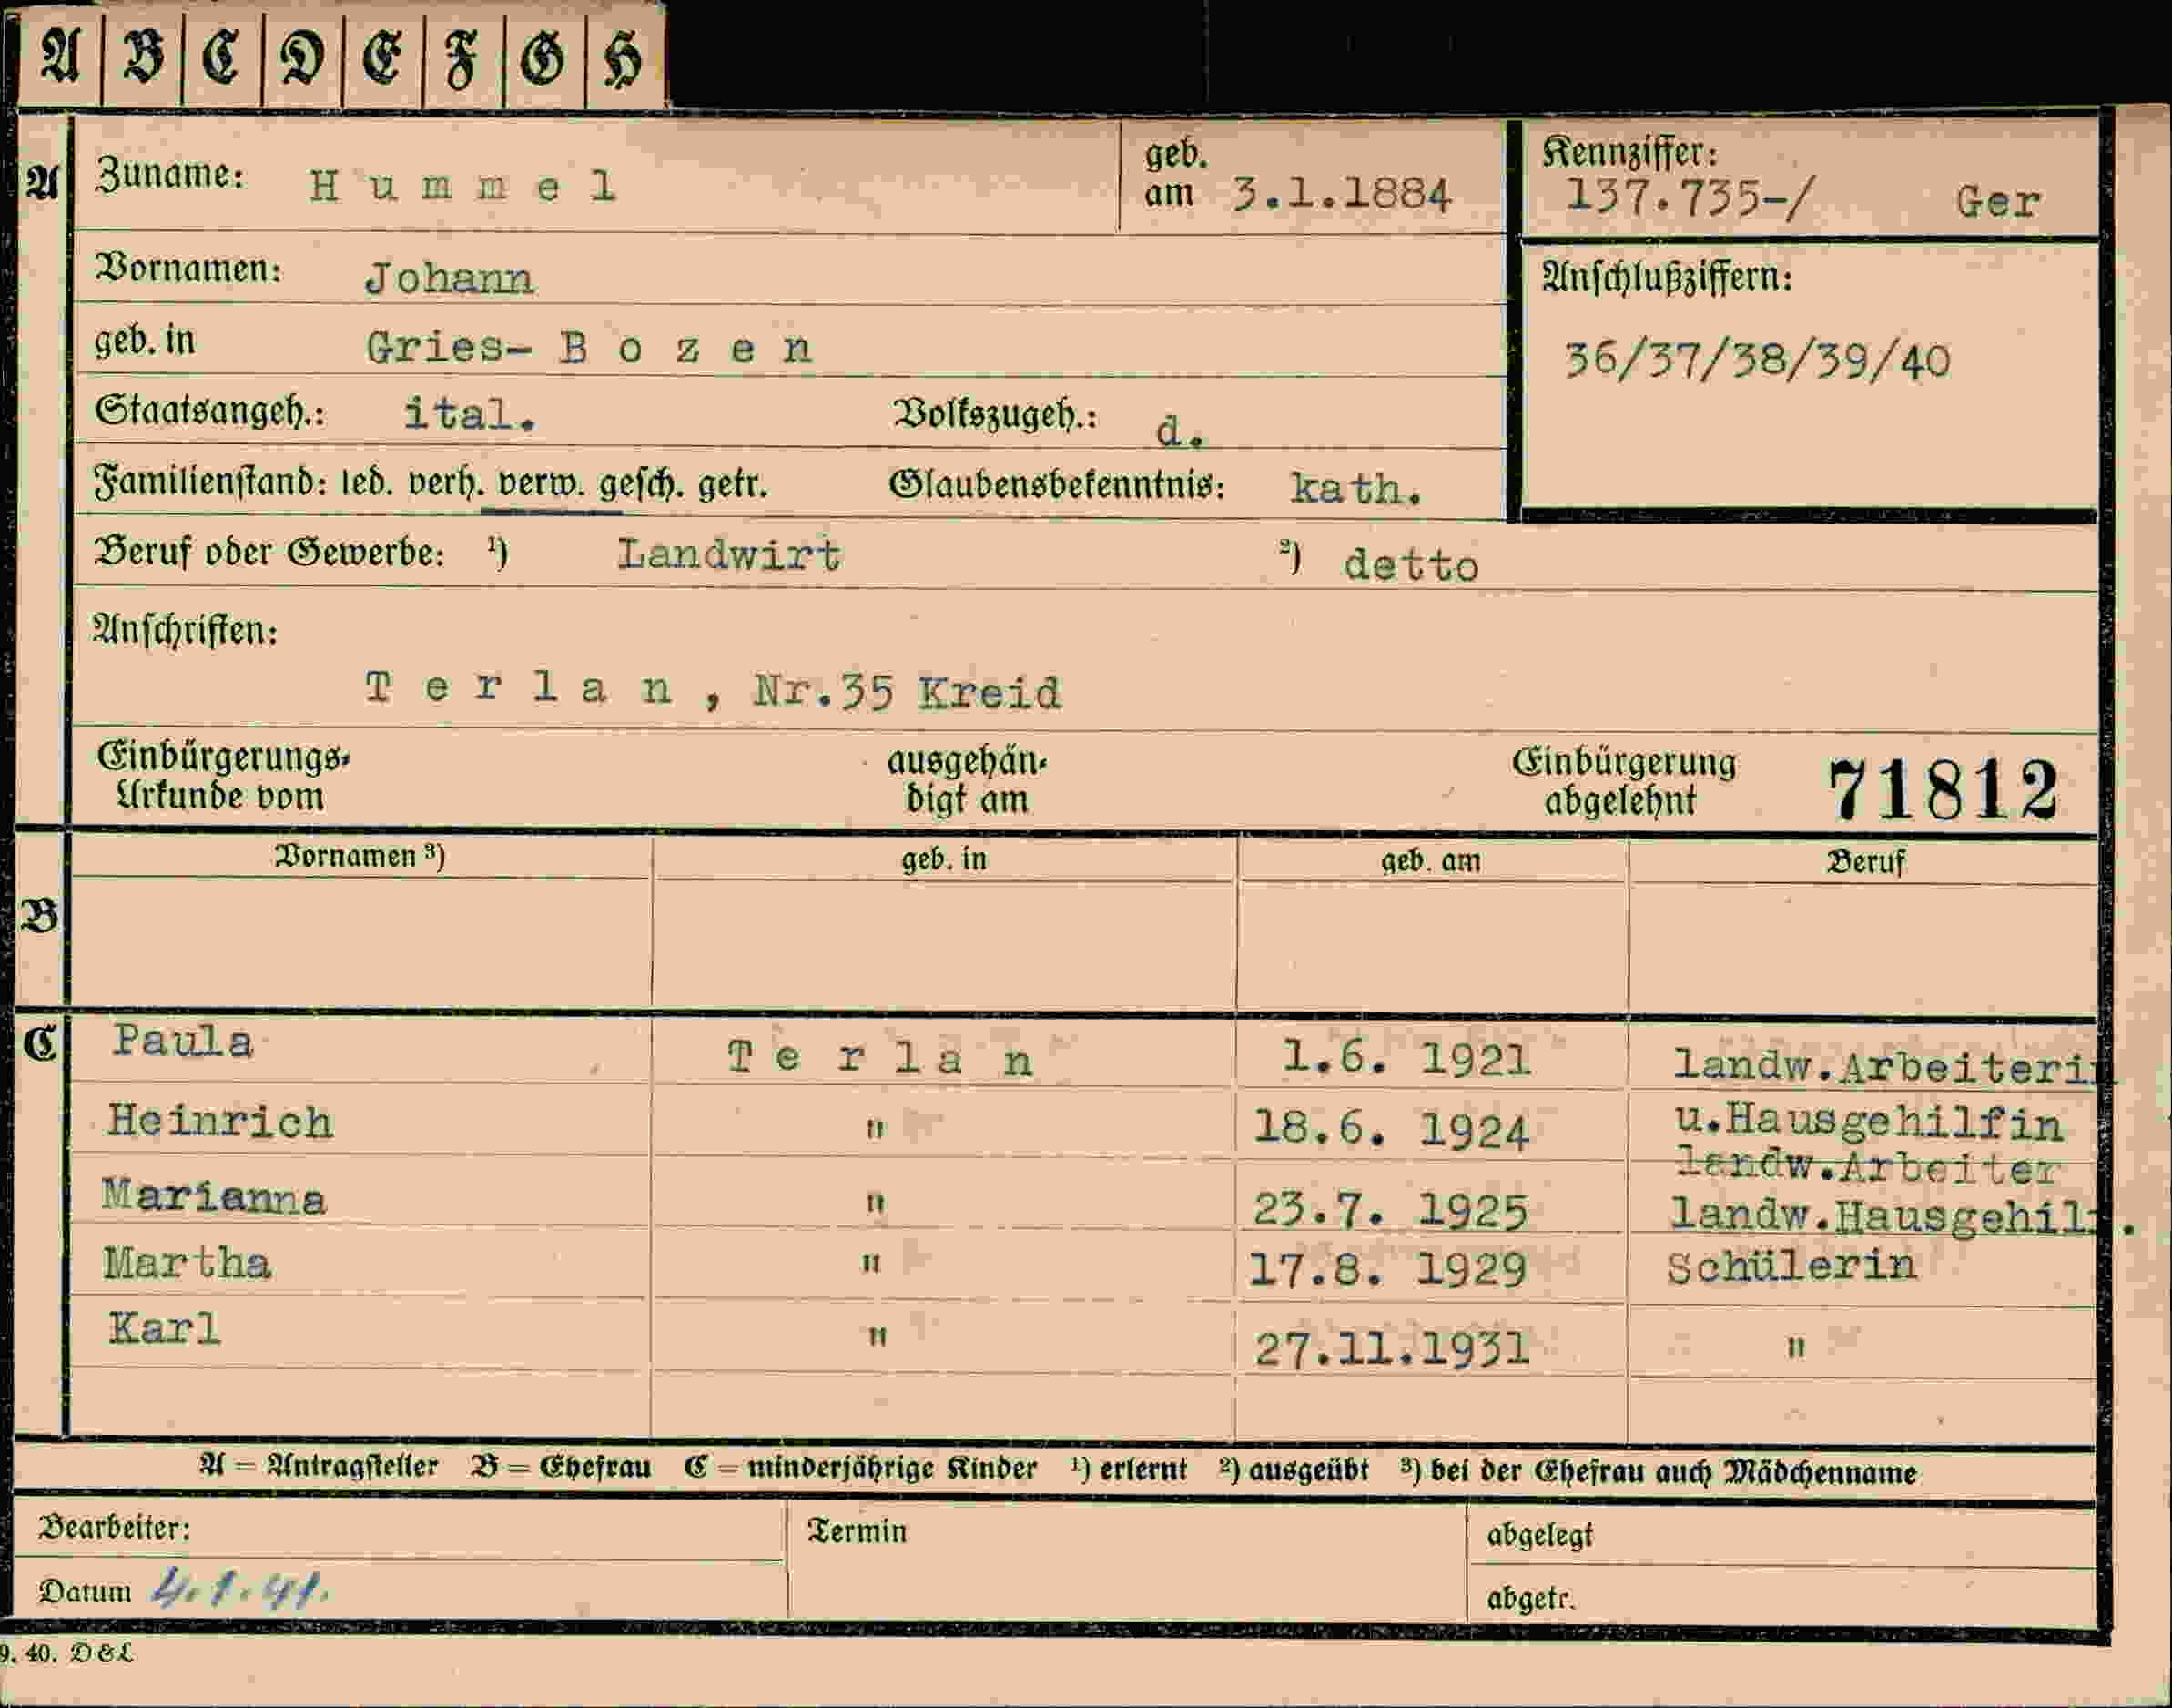 A B C D E F G H
A Zuname: Hummel geb. am 3.1.1884 Kennziffer: 137.735-/ Ger
Vornamen: Johann Anschlußziffern:
geb. in Gries- Bozen 36/37/38/39/40
Staatsangeh.: ital. Volkszugeh.: d.
Familienstand: led. verh. verw. gesch. getr. Glaubensbekenntnis: kath.
Beruf oder Gewerbe: ¹) Landwirt ²) detto
Anschriften:
Terlan, Nr.35 Kreid
Einbürgerungs- ausgehän- Einbürgerung 71812
Urkunde vom digt am abgelehnt
Vornamen ³) geb. in geb. am Beruf
B
C Paula Terlan 1.6. 1921 landw.Arbeiterin
Heinrich " 18.6. 1924 u.Hausgehilfin
landw.Arbeiter
Marianna " 23.7. 1925 landw.Hausgehilf.
Martha " 17.8. 1929 Schülerin
Karl " 27.11.1931 "
A = Antragsteller B = Ehefrau C = minderjährige Kinder ¹) erlernt ²) ausgeübt ³) bei der Ehefrau auch Mädchenname
Bearbeiter: Termin abgelegt
Datum 4.1.41. abgetr.
9. 40. D&L